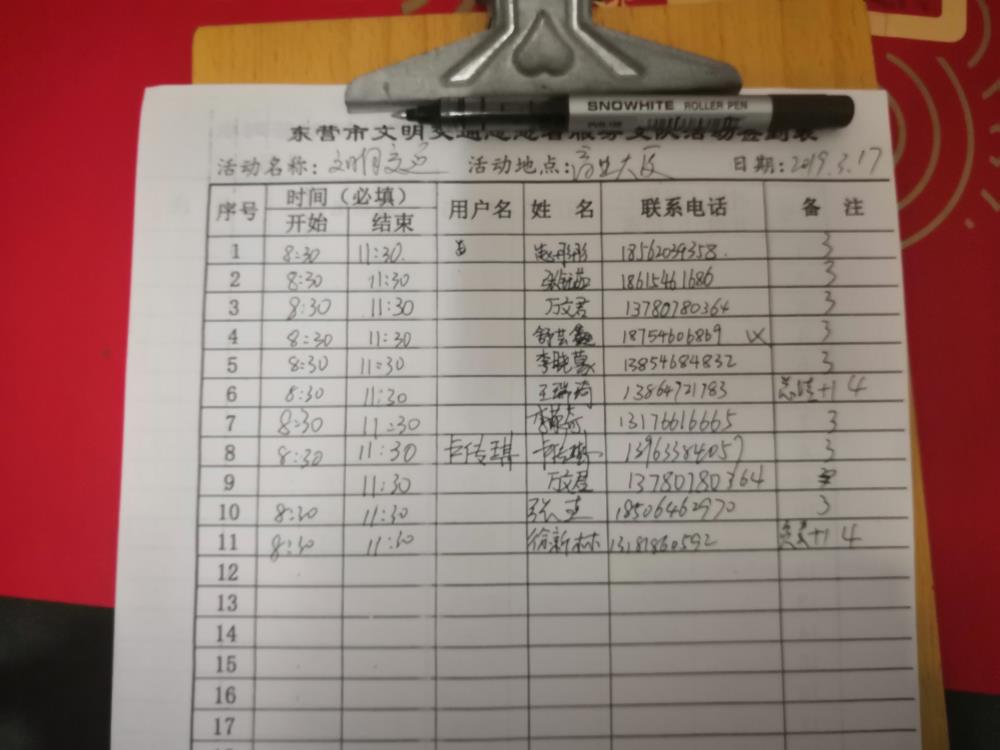 SNOWHITE ROLLER PEN
东营市文明交通志愿者服务支队活动签到表
活动名称：文明交通 活动地点： 日期：2019.3.17
序号 时间（必填） 用户名 姓 名 联系电话 备 注
开始 结束
1 8:30 11:30 赵彤彤 18562039358 3
2 8:30 11:30 18615461686 3
3 8:30 11:30 万文君 13780780364 3
4 8:30 11:30 舒芸 18754606869 3
5 8:30 11:30 李晓蒙 13854684832 3
6 8:30 11:30 王瑞琦 13864721783 +1 4
7 8:30 11:30 13176616665 3
8 8:30 11:30 卞传琪 卞传琪 13963384057 3
9 11:30 万文君 13780780364
10 8:30 11:30 张 18506462970 3
11 8:30 11:30 徐新林 13181860592 +1 4
12
13
14
15
16
17